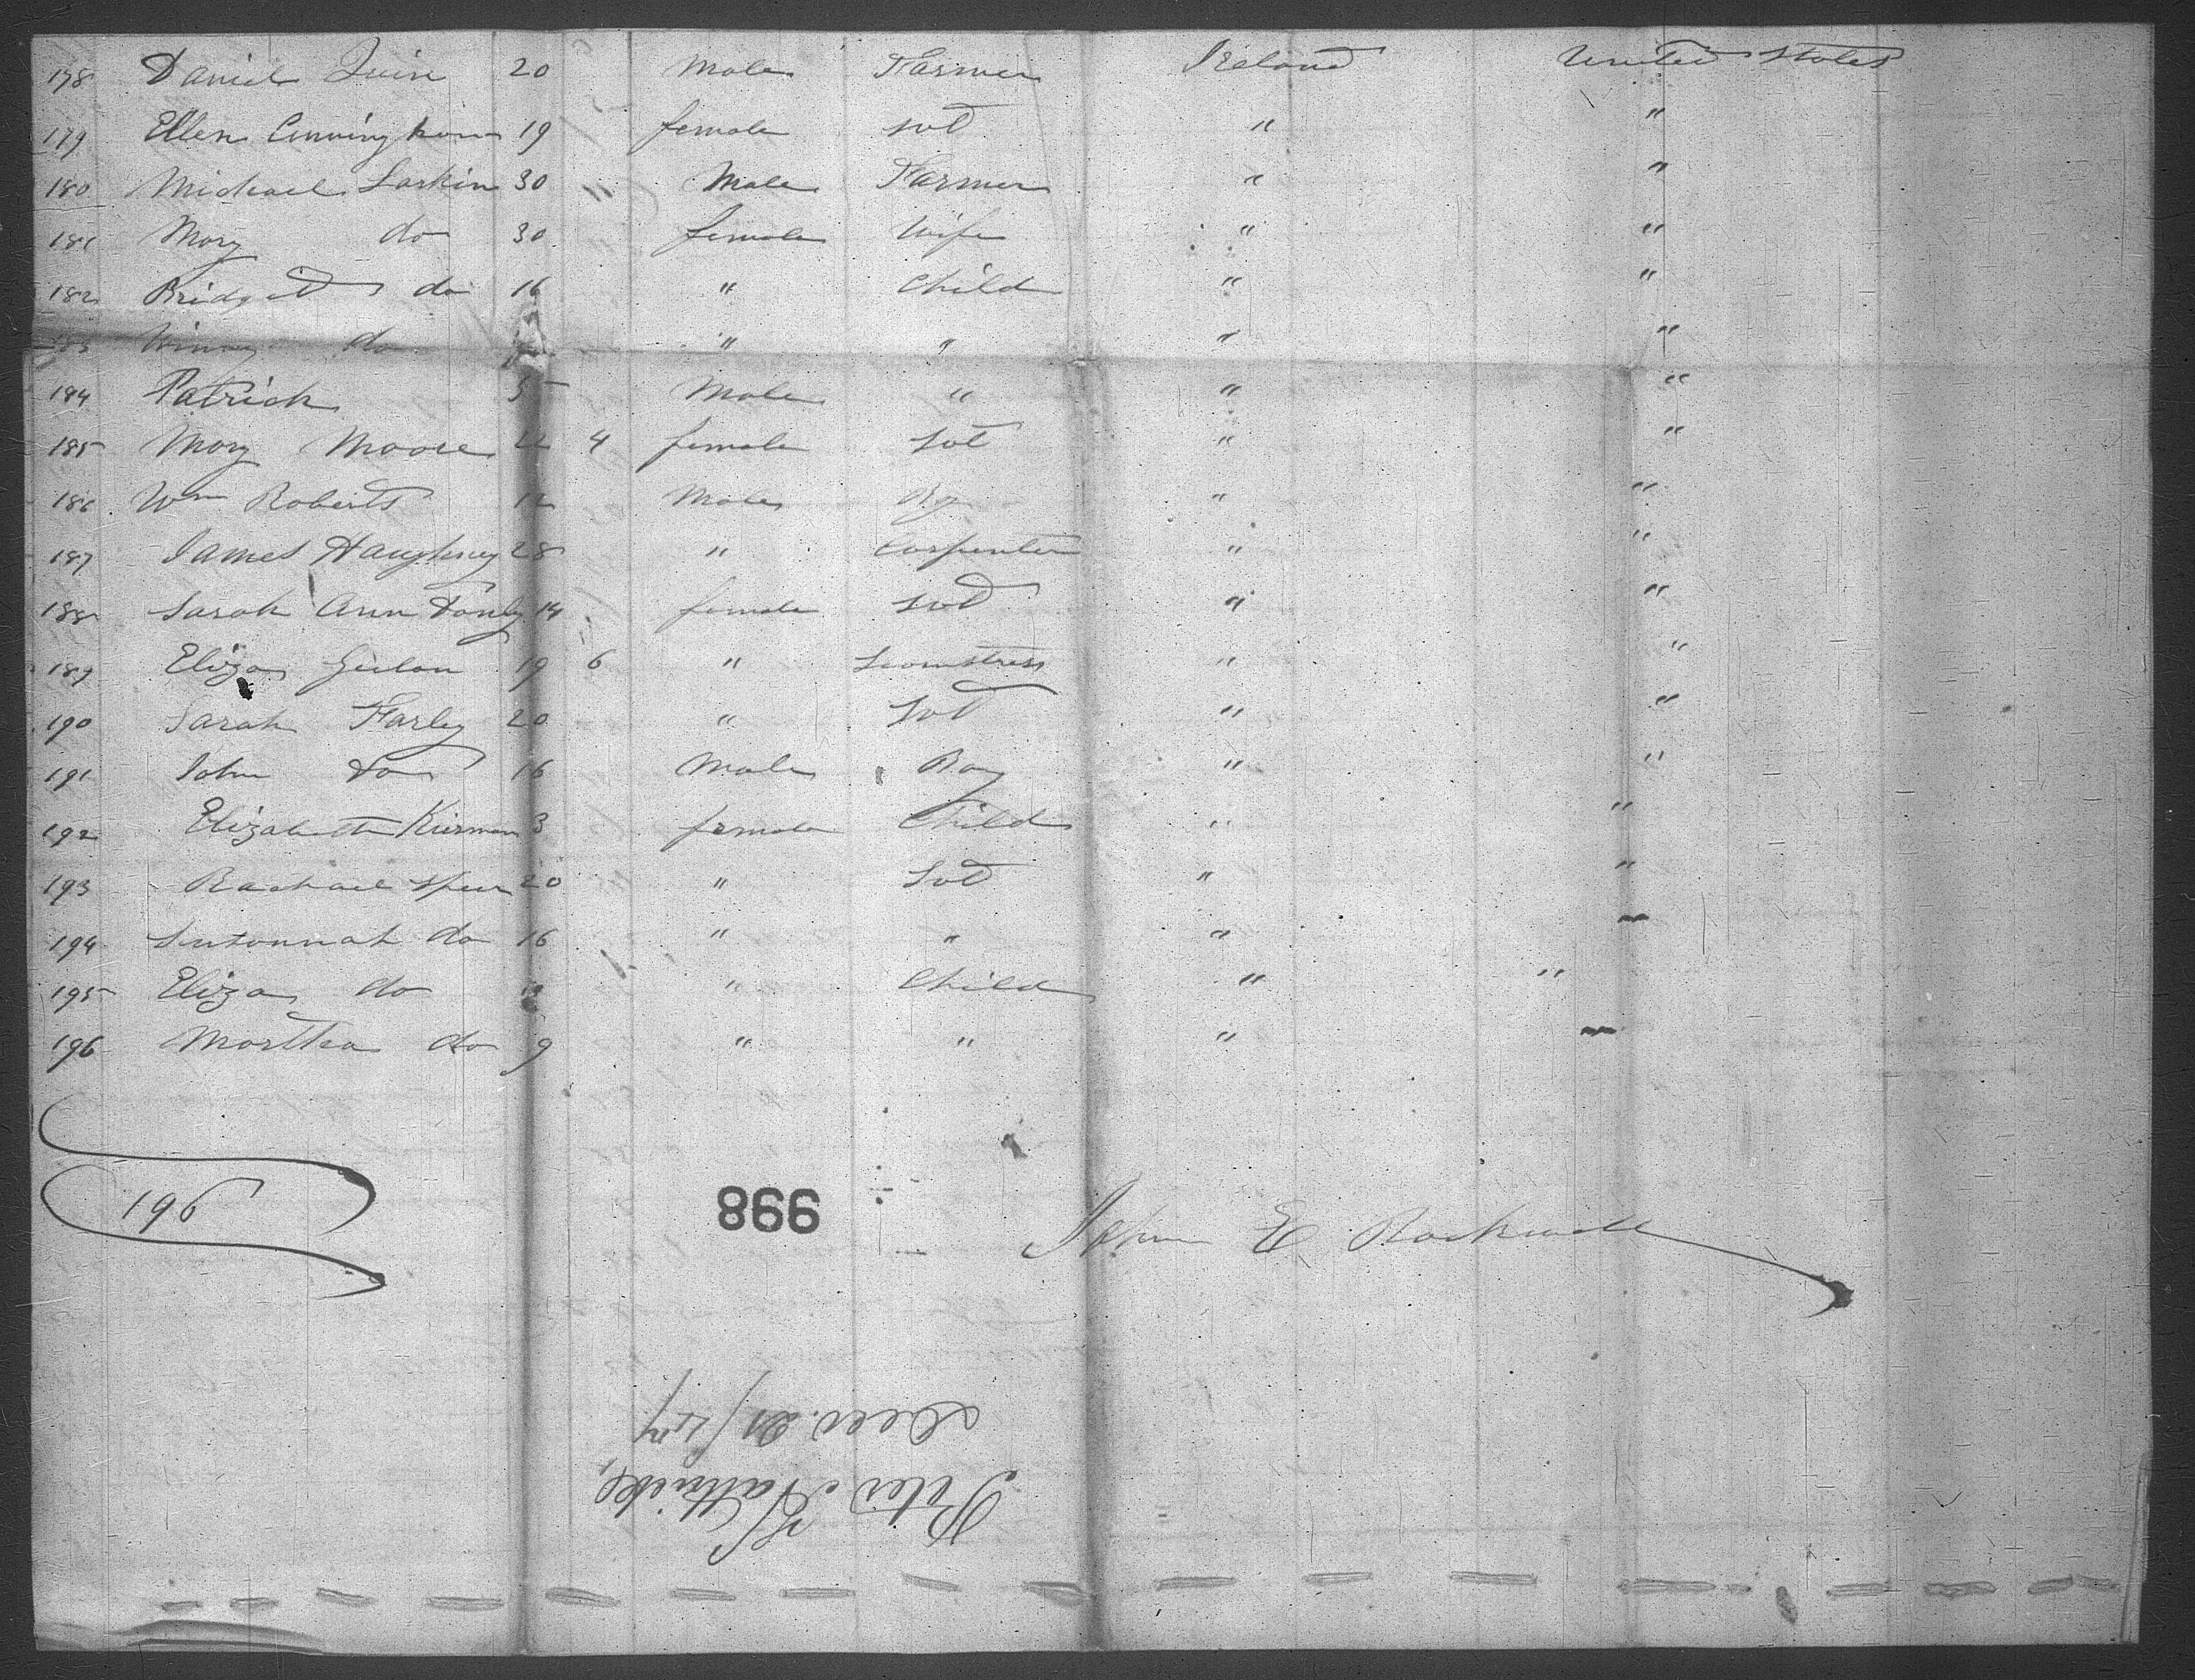 178 Daniel Quin 20 Male Farmer Ireland United States
179 Ellen Cunningham 19 female svt " "
180 Michael Larkin 30 Male Farmer " "
181 Mary do 30 female Wife " "
182 Bridget do 16 " Child " "
183 Winny do " " " "
184 Patrick 5 Male " " "
185 Mary Moore 4 female svt " "
186 Wm Roberts 12 Male " "
187 James Haughney 28 " Carpenter " "
188 Sarah Ann 14 female svt " "
189 Eliza 19 6 " Seamstress " "
190 Sarah Farley 20 " svt " "
191 John Do 16 Male Boy " "
192 Elizabeth Kiernan 3 female Child " "
193 Rachael Speer 20 " svt " "
194 do 16 " " " "
195 Eliza do " Child " "
196 Martha do 9 " " " "
196
866
John E Rockwell
Peter Hattrick,
Decr. 21/47